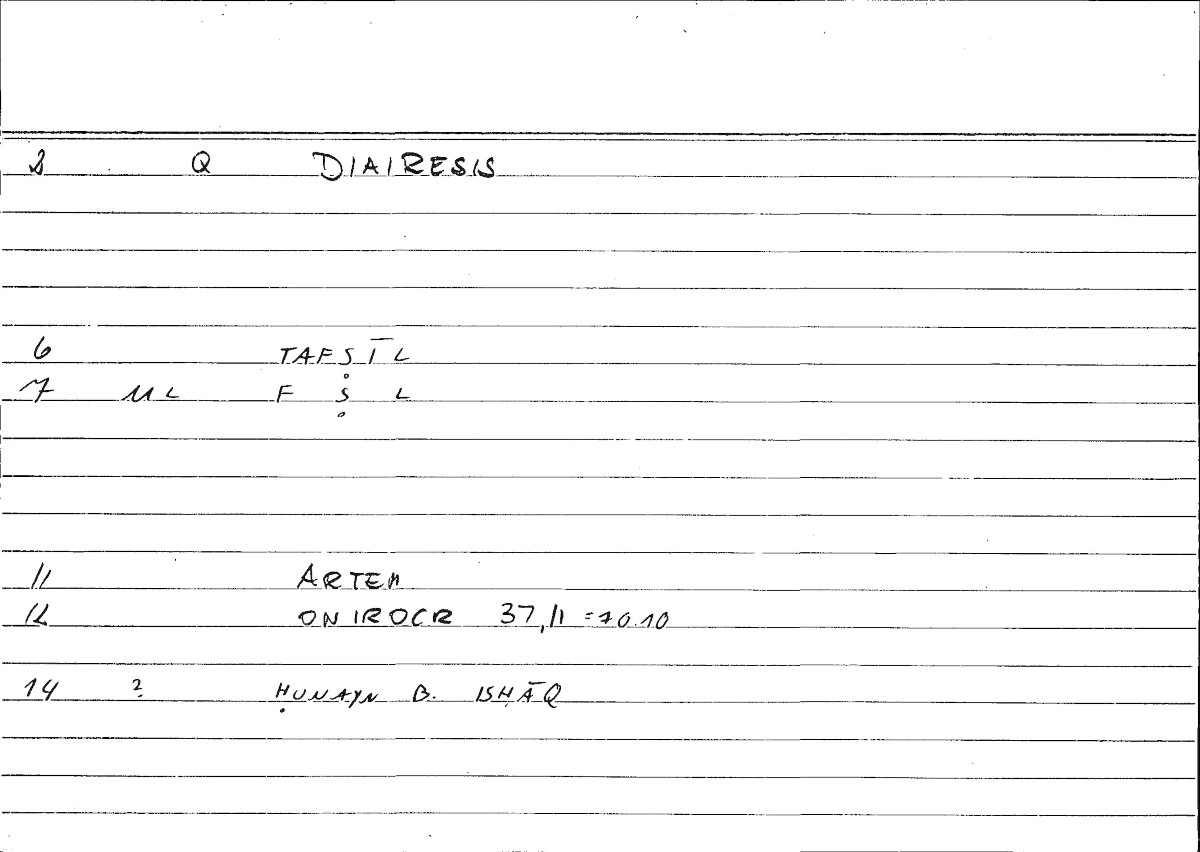 2 Q DIAIRESIS
6 TAFṢĪL
7 ML F Ṣ L
11 ARTEM
12 ONIROCR 37,11 = 70.10
14 ? ḤUNAYN B. ISḤĀQ